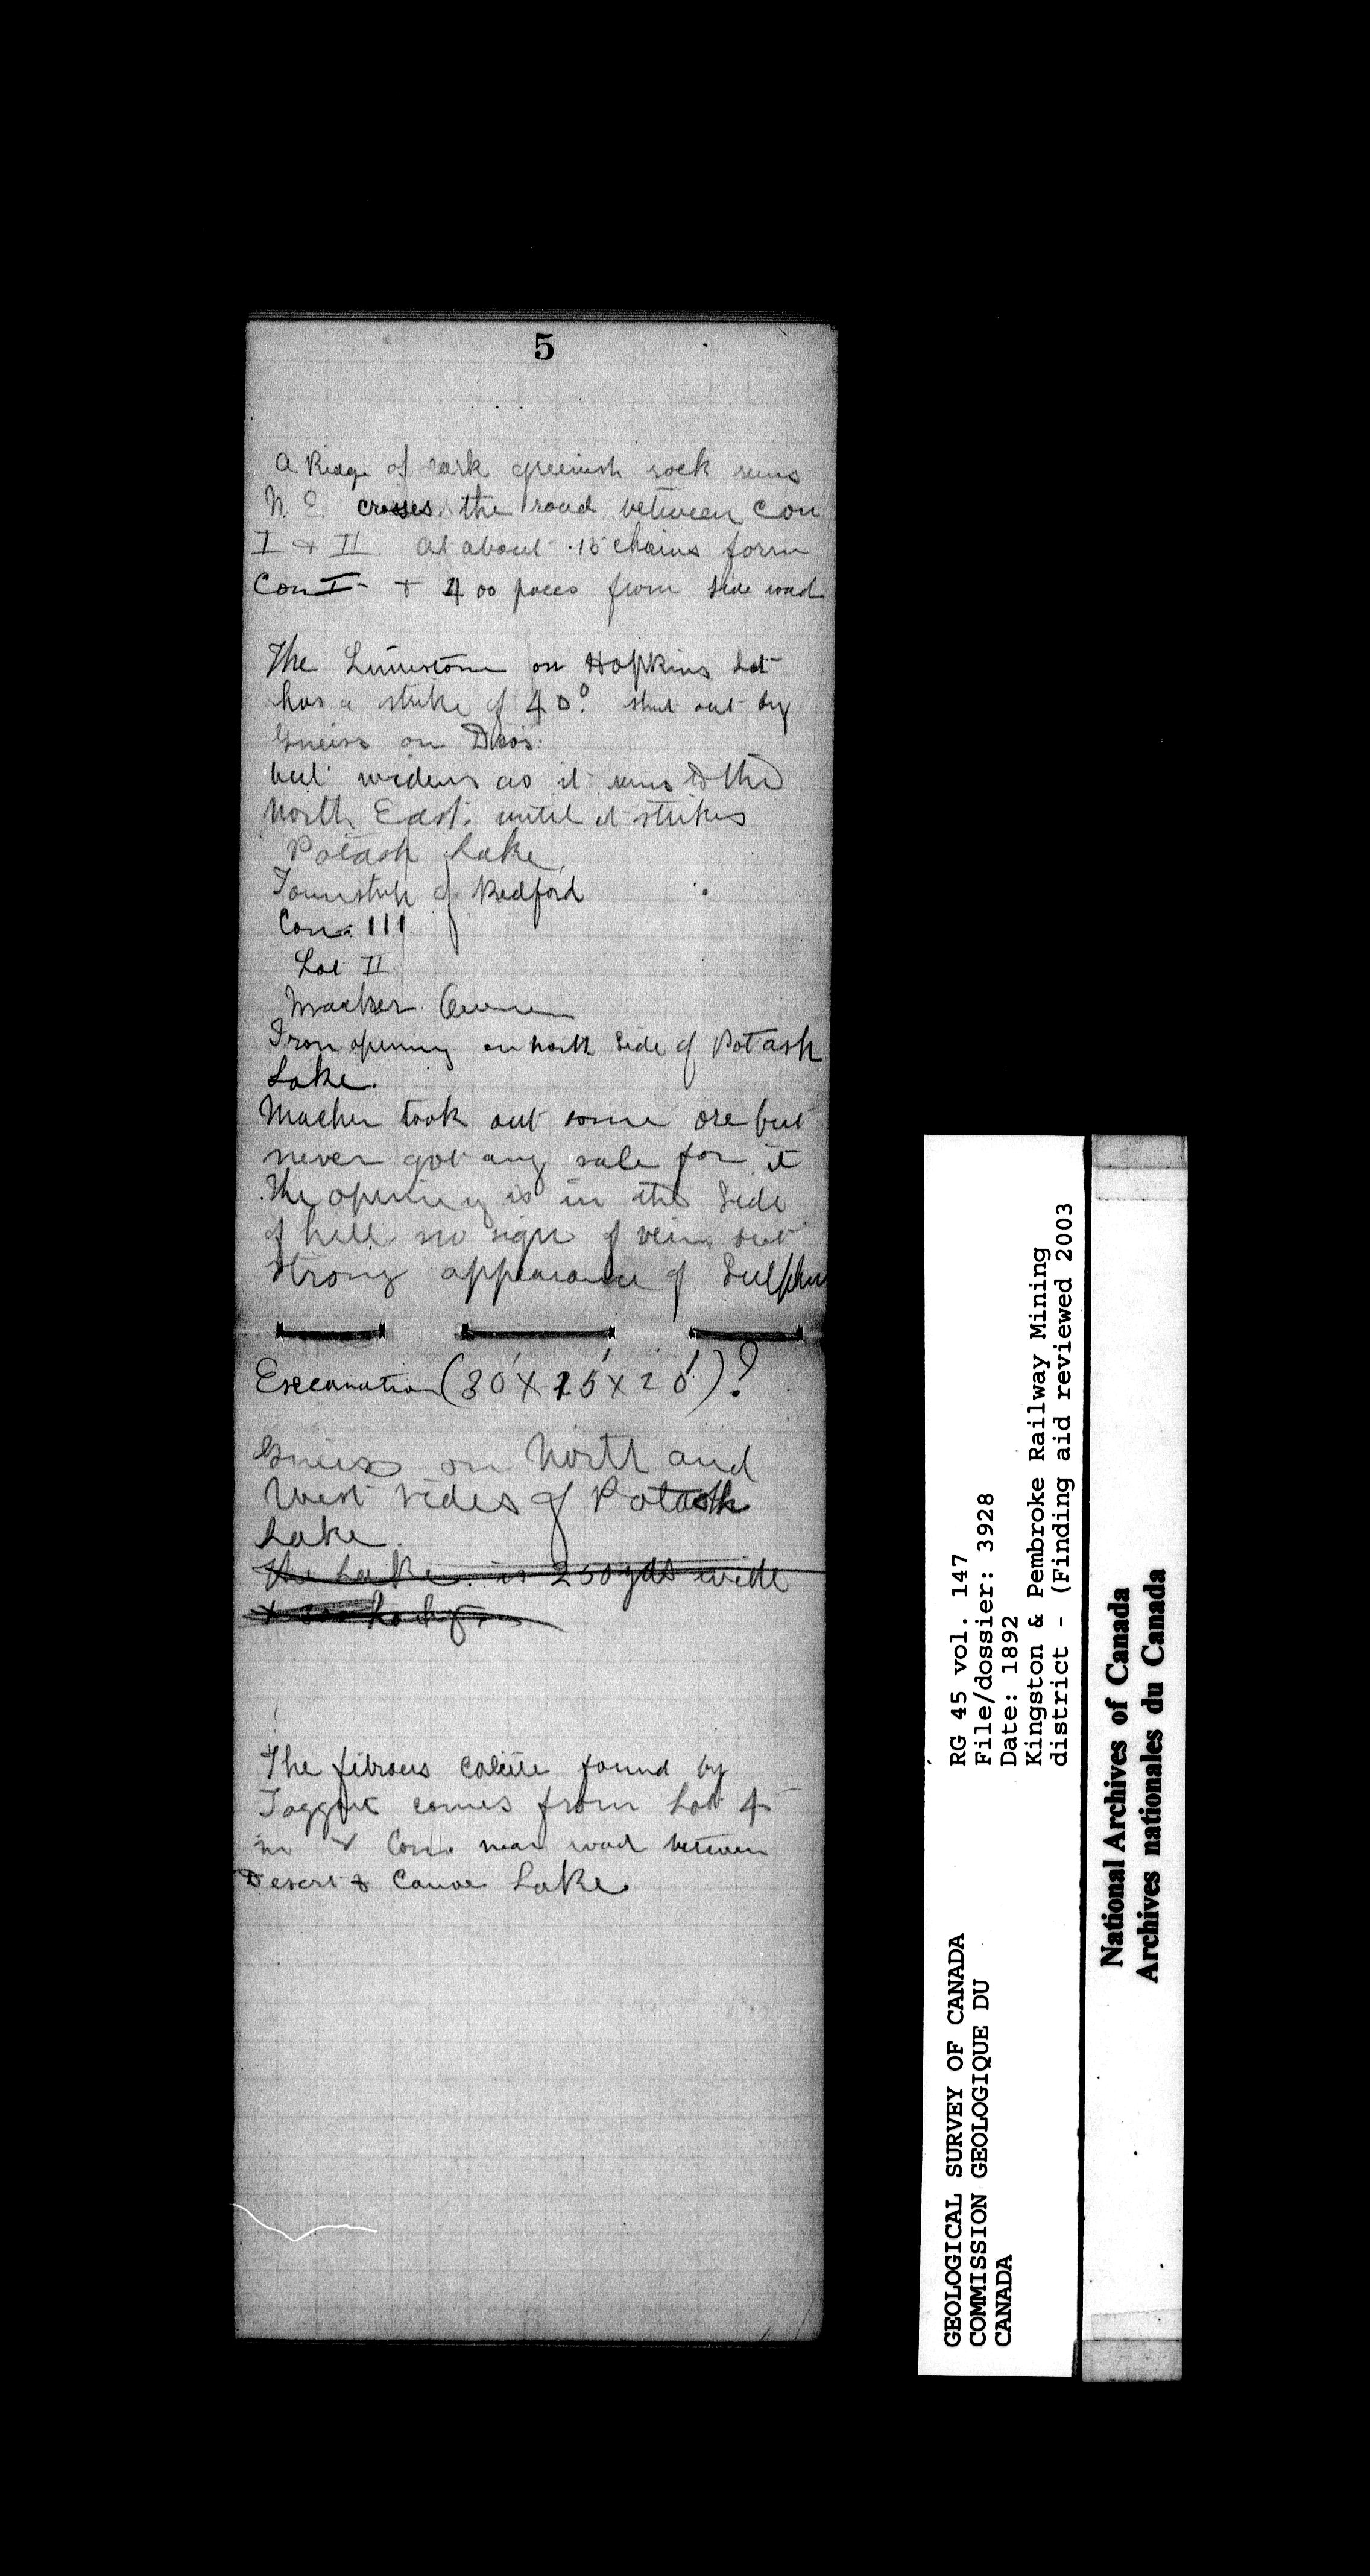 5
A Ridge of dark greenish rock runs
N. E. crosses the road between Con
I & II. At about 15 chains form
Con I - & 400 paces from side road
The Limestone on Hopkins Lot
has a strike of 40°. shut out by
Gneiss on
but widens as it runs to the
North East. until it strikes
Potash Lake,
Township of Bedford
Con. III
Lot II
Macher Owner
Iron opening on north side of Potash
Lake.
Macher took out some ore but
never got any sale for it
The opening is in the side
of hill no sign of vein, but
strong appearance of Sulphur
Excavation (30' x 15' x 20')?
Gneiss on North and
West sides of Potash
Lake.
The Lake is 250 yds wide
The fibrous calcite found by
comes from Lot 4
in Con. near road between
Desert & Canoe Lake.
RG 45 vol. 147
File/dossier: 3928
Date: 1892
Kingston & Pembroke Railway Mining
district - (Finding aid reviewed 2003
GEOLOGICAL SURVEY OF CANADA
COMMISSION GEOLOGIQUE DU
CANADA
National Archives of Canada
Archives nationales du Canada